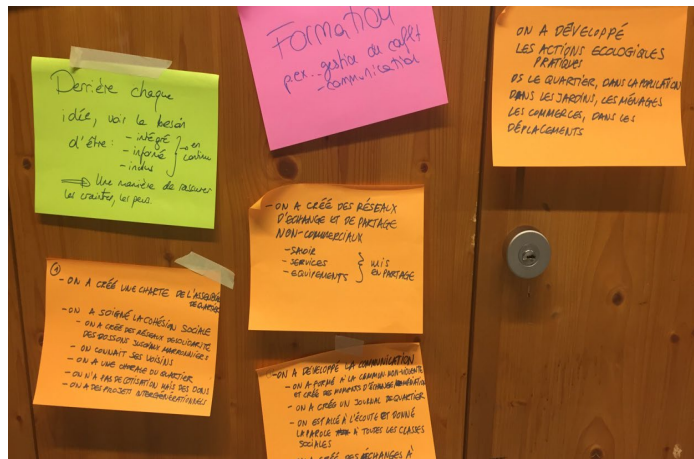 Derrière chaque
idée, voir le besoin
d'être : - intégré
- informé
- inclus
en continu
⇒ Une manière de rassurer
les craintes, les peurs.
Formation
pex.. gestion de conflit
- communication
ON A DÉVELOPPÉ
LES ACTIONS ECOLOGIQUES
PRATIQUES
DS LE QUARTIER, DANS LA POPULATION
DANS LES JARDINS, LES MÉNAGES
LES COMMERCES, DANS LES
DÉPLACEMENTS
- ON A CRÉÉ DES RÉSEAUX
D'ECHANGE ET DE PARTAGE
NON-COMMERCIAUX
- SAVOIR
- SERVICES
- EQUIPEMENTS
MIS
EN PARTAGE
- ON A CRÉÉ UNE CHARTE DE L'ASSEMBLÉE
DE QUARTIER
- ON A SOIGNÉ LA COHÉSION SOCIALE
- ON A CRÉÉ DES RÉSEAUX DE SOLIDARITÉ
DES BOSSONS JUSQU'AUX MARRONNIERS
- ON CONNAIT SES VOISINS
- ON A UNE DU QUARTIER
- ON N'A PAS DE COTISATION MAIS DES DONS
- ON A DES PROJETS INTERGÉNÉRATIONNELS
- ON A DÉVELOPPÉ LA COMMUNICATION
- ON A FORMÉ A LA COMMUN. NON-VIOLENTE
ET CRÉÉ DES MOMENTS D'ÉCHANGE
- ON A CRÉÉ UN JOURNAL DE QUARTIER
- ON EST ALLÉ À L'ÉCOUTE ET DONNÉ
LA PAROLE À TOUTES LES CLASSES
SOCIALES
DES ÉCHANGES À